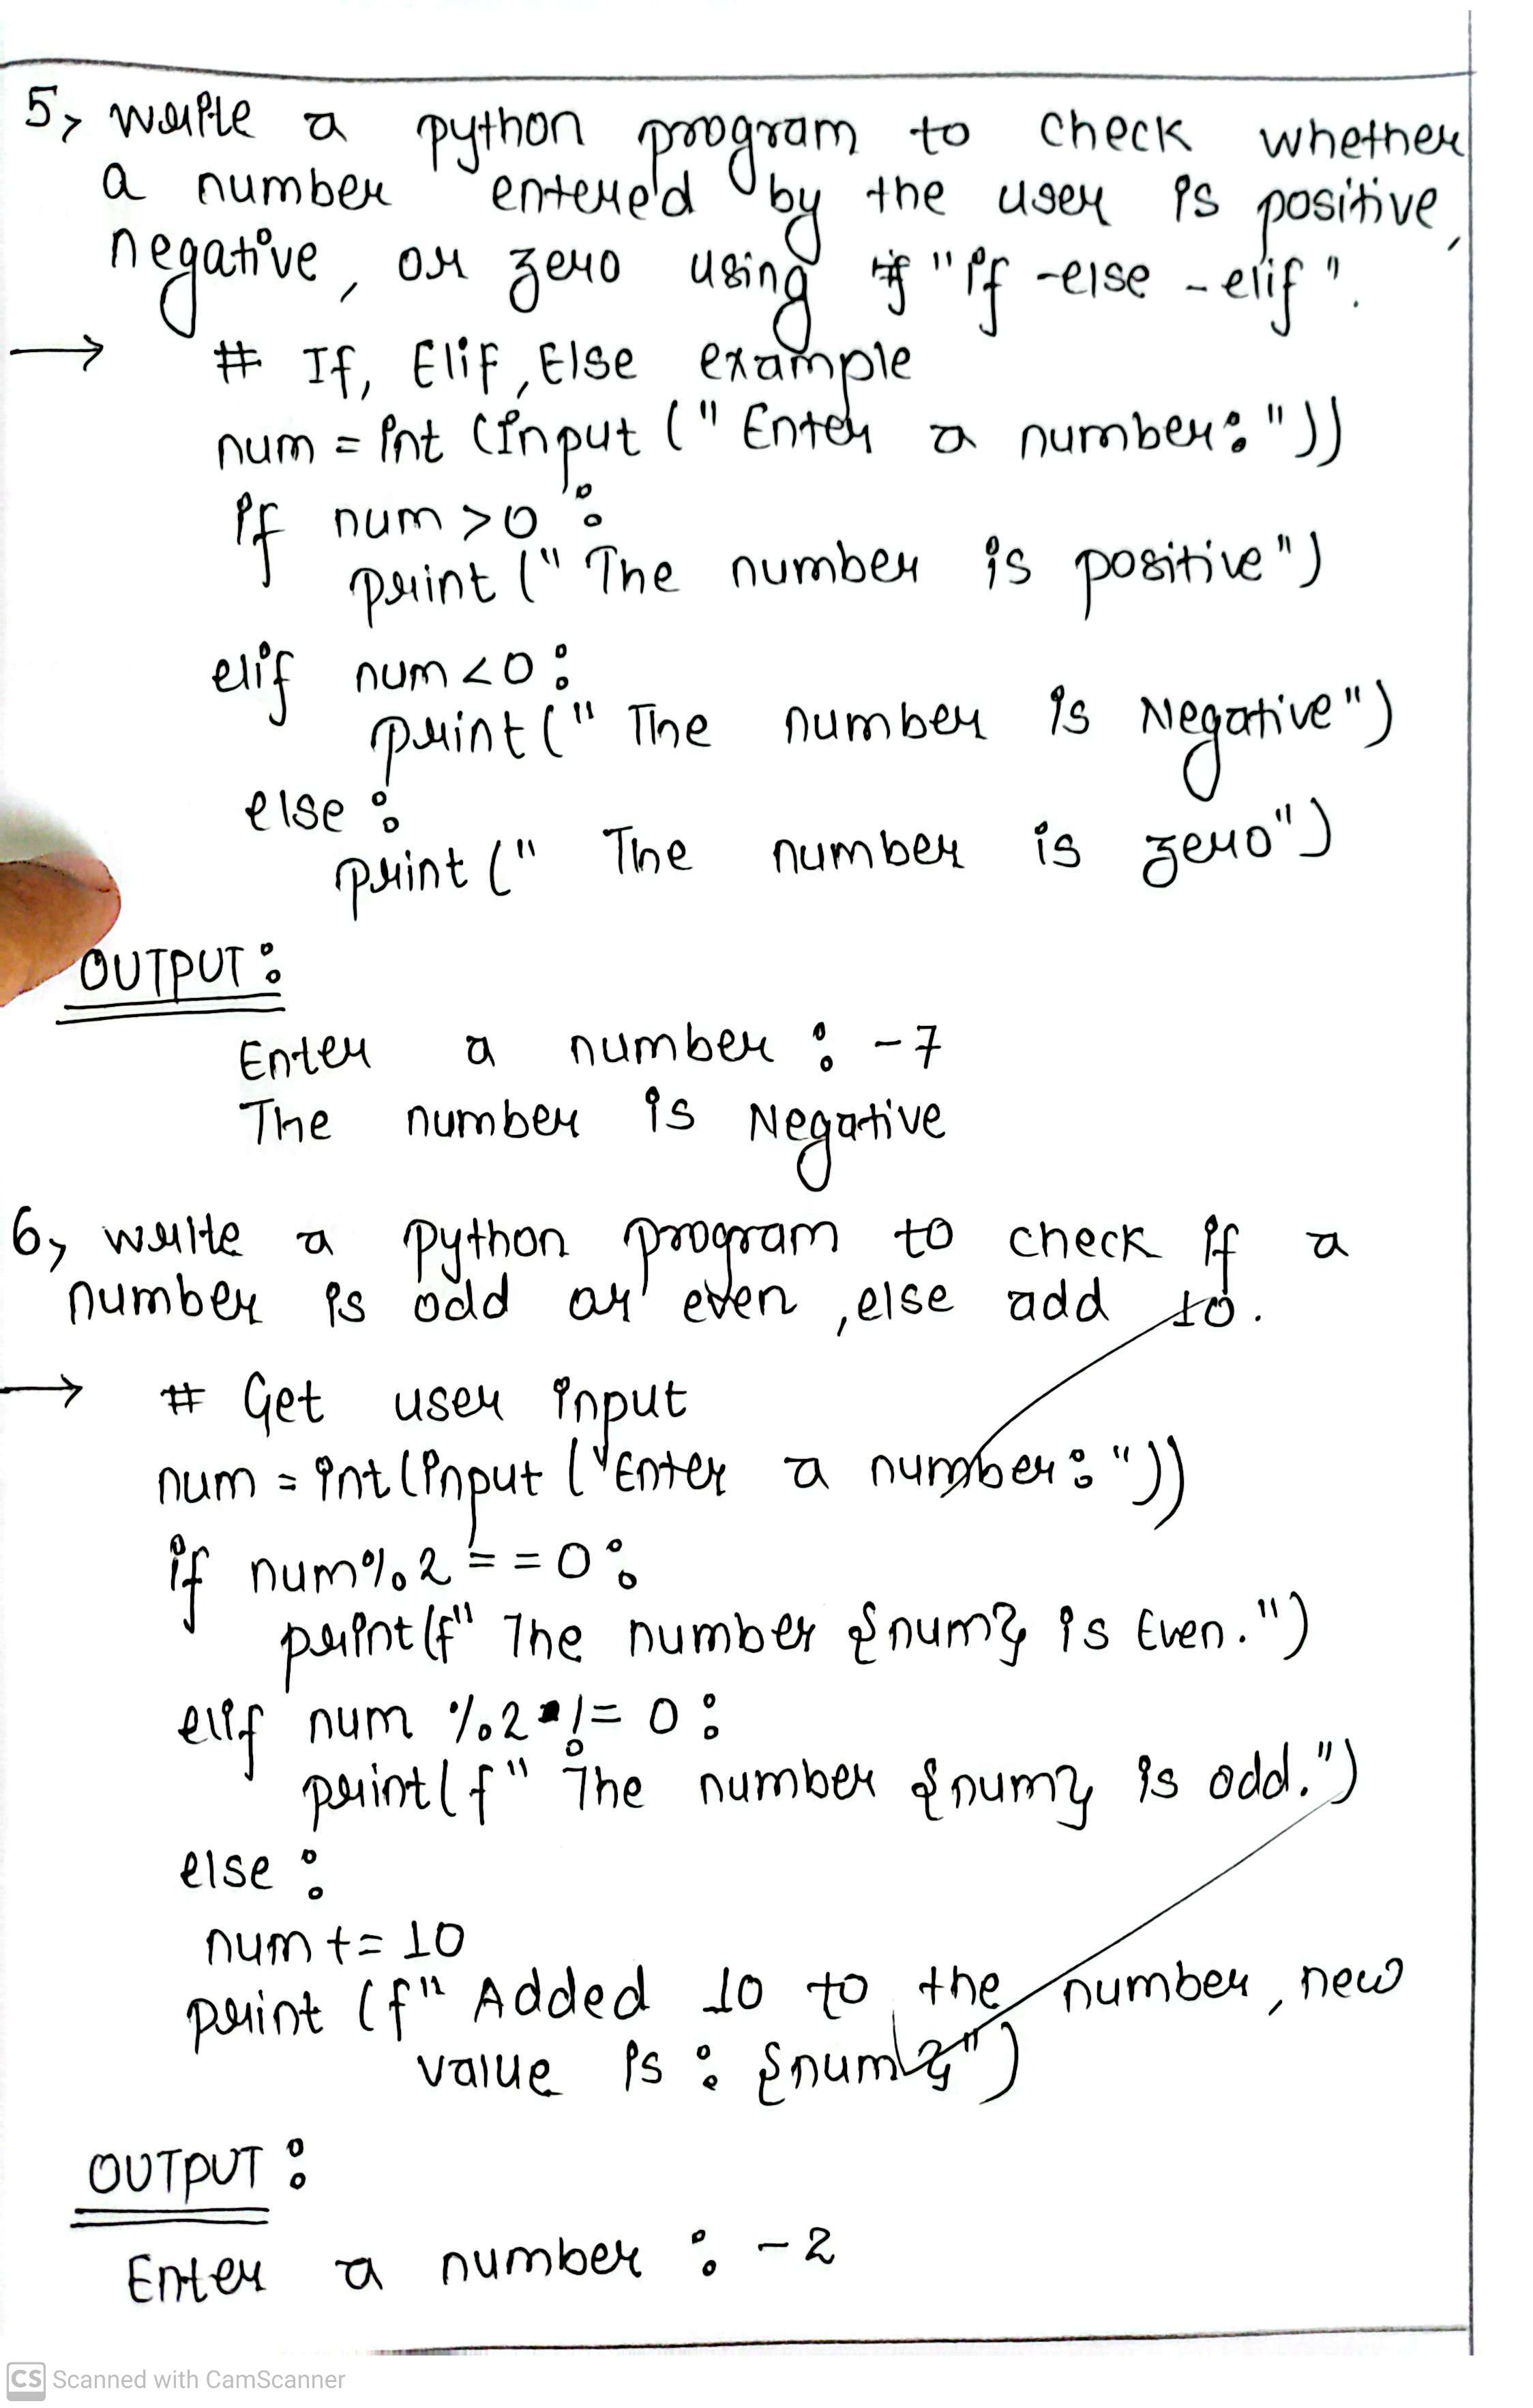 5, write a python program to check whether
a number entered by the user is positive,
negative, or zero using "if -else -elif".
→ # If, Elif, Else example
num = int (input (" Enter a number: "))
if num >0 :
print (" The number is positive")
elif num <0 :
print (" The number is Negative")
else :
print (" The number is zero")
OUTPUT :
Enter a number : -7
The number is Negative
6, write a python program to check if a
number is odd or even, else add 10.
→ # Get user input
num = int (input ("Enter a number: "))
if num%2 == 0 :
print (f" The number {num} is Even.")
elif num %2 != 0 :
print (f" The number {num} is odd.")
else :
num += 10
print (f" Added 10 to the number, new
value is : {num}")
OUTPUT :
Enter a number : -2
CS Scanned with CamScanner